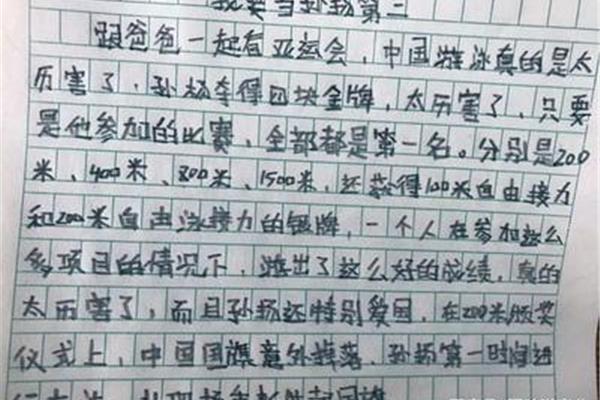 我要当孙扬第二
跟爸爸一起看亚运会，中国游泳真的是太
历害了，孙杨夺得四块金牌，太历害了，只要
是他参加的比赛，全部都是第一名。分别是200
米、400米、800米、1500米，还获得100米自由接力
和200米自由泳接力的银牌，一个人在参加这么
多项目的情况下，游出了这么好的成绩，真的
太历害了，而且孙扬还特别爱国，在200米颁奖
仪式上，中国国旗意外掉落，孙扬第一时间进
国旗